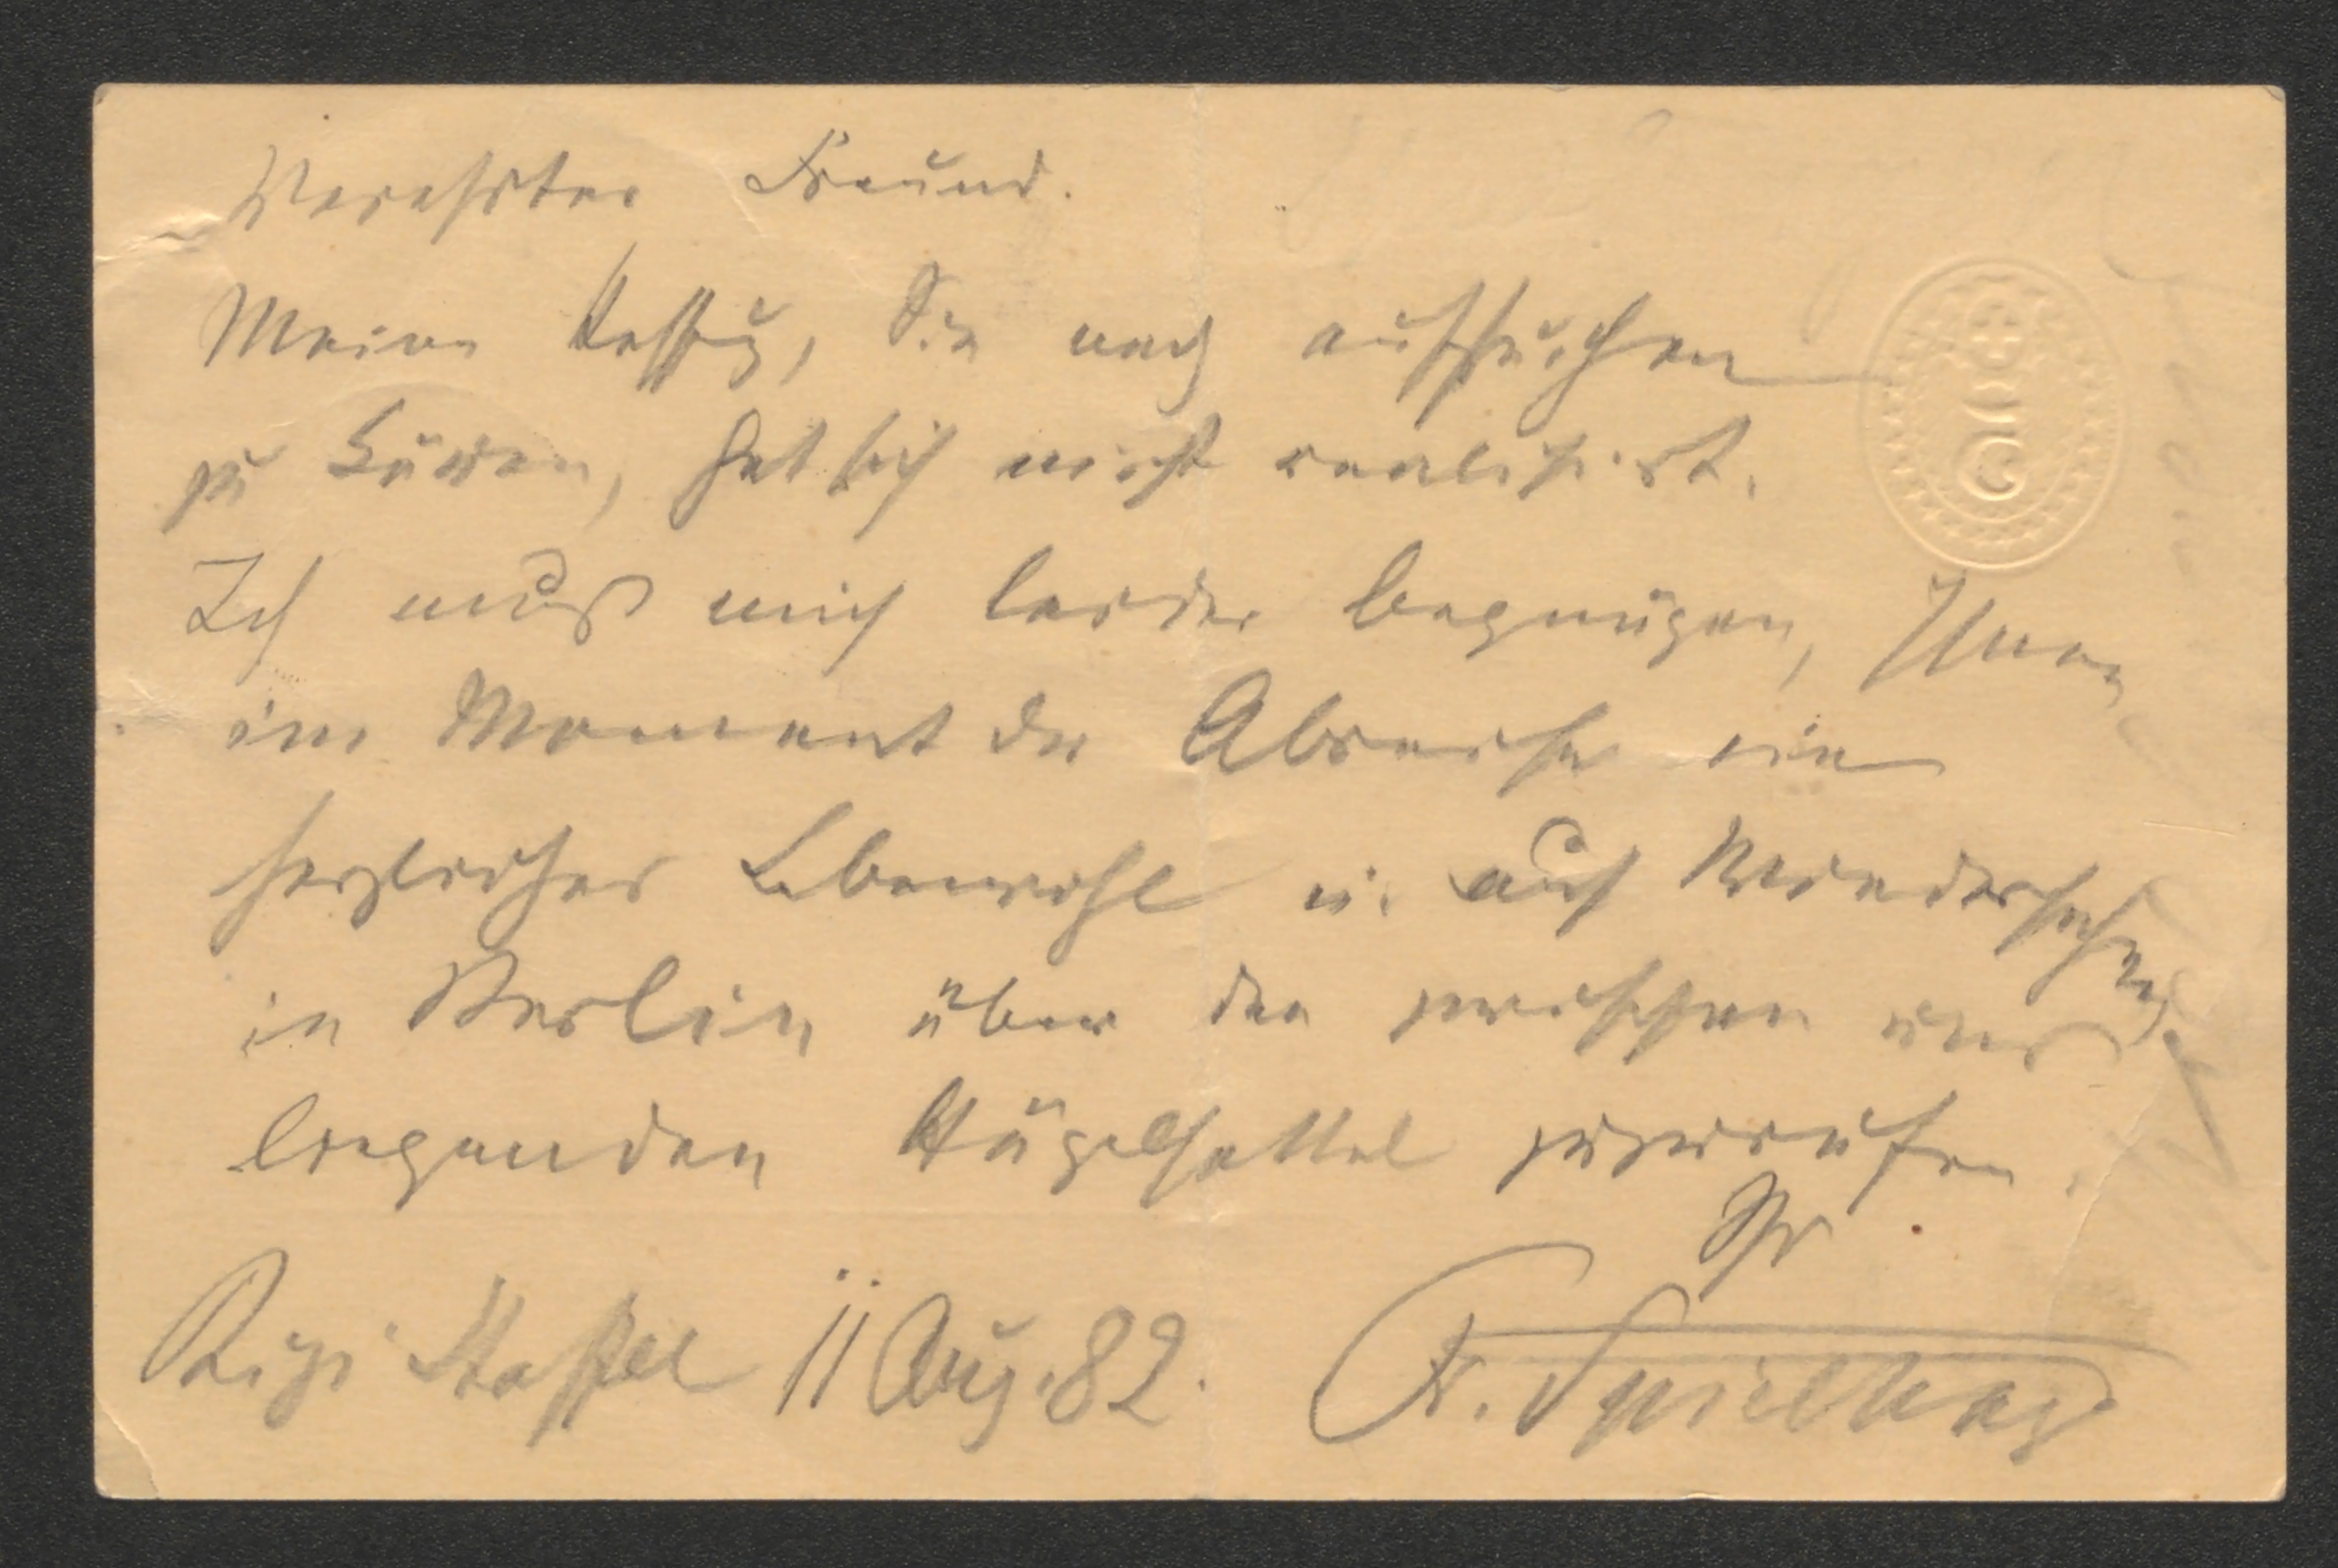 Verehrter Freund.
Meine Hoffng, Sie noch aufsuchen
zu können, hat sich nicht realisirt.
Ich muß mich leider begnügen, Ihnen
im Moment der Abreise ein
herzliches Lebewohl u. auf Wiedersehen
in Berlin über den zwischen uns
liegenden Hügelsattel zuzurufen.
Ihr
Rigi Staffel 11 Aug. 82. Fr. Spielhagen